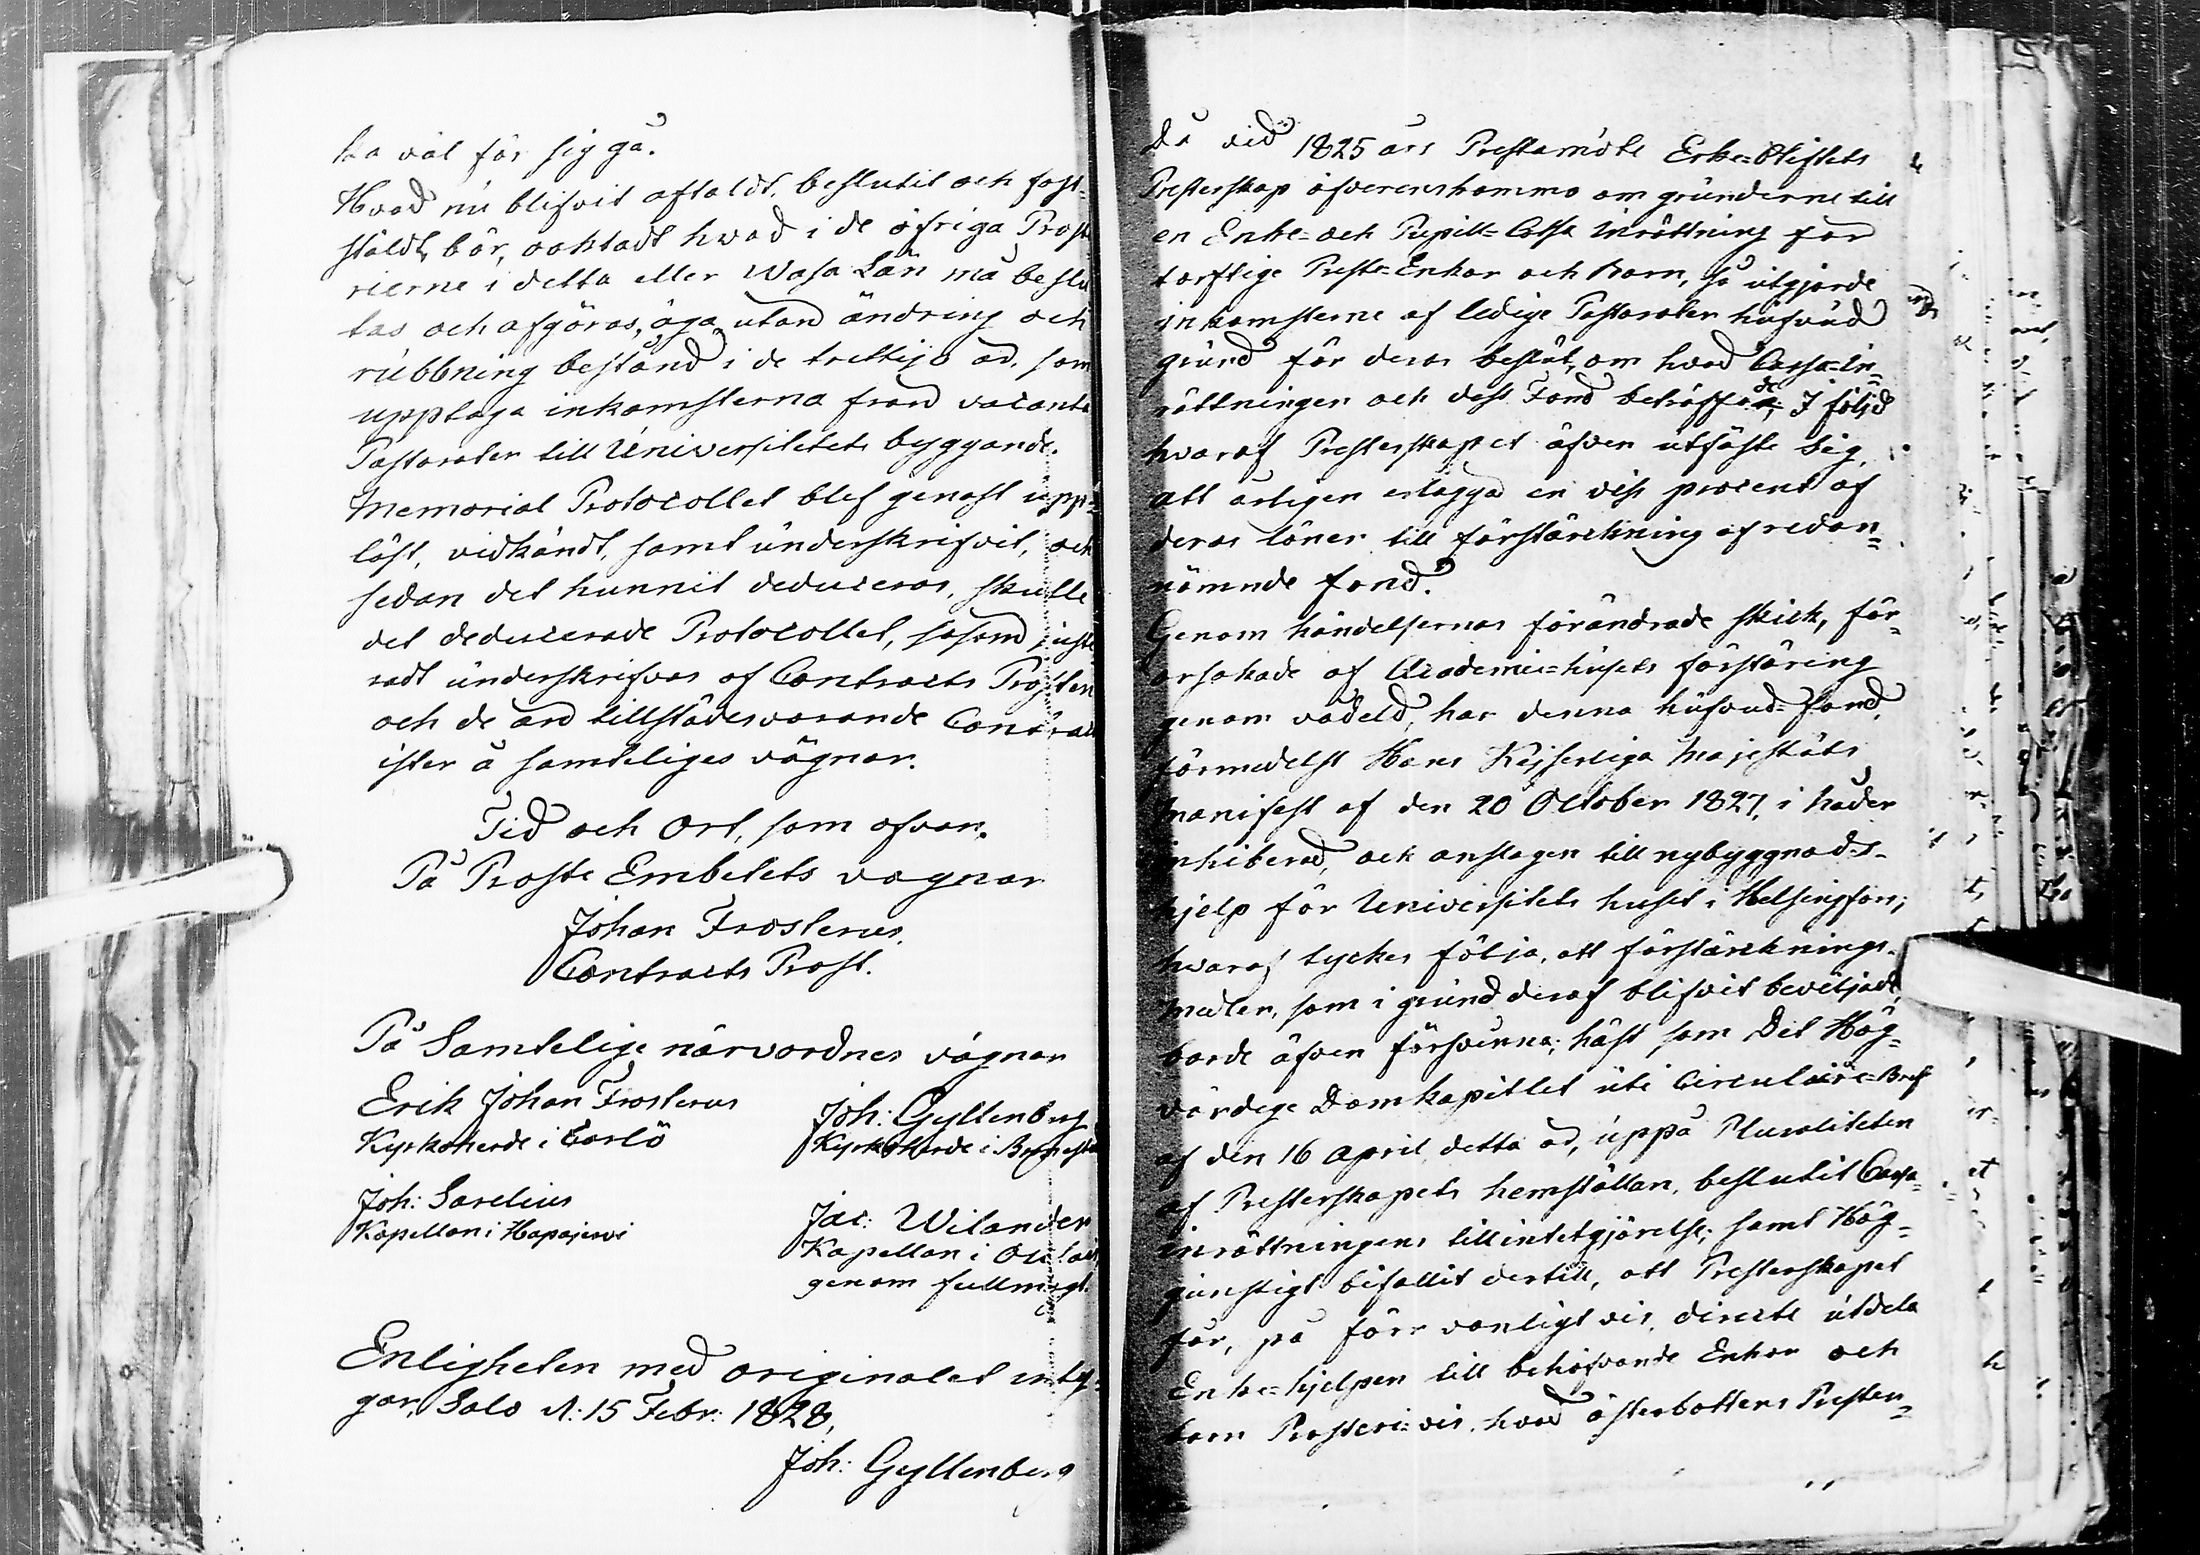 ka väl för sig gå.
Hvad nu blifvit aftaldt, beslutit och fast-
stäldt, bör, oaktadt hvad i de öfriga Proste
rierne i detta eller Wasa Län må beslu
tas och afgöras, äga utan ändring och
rubbning bestånd i de trettijo år, som
upptaga inkomsterna från vacanta
Pastorater till Universitetets byggande.
Memorial Protocollet blef genast upp-
läst, vidkändt, samt underskrifvit, och
sedan det hunnit deduceras, skulle
det deducerade Protocollet, såsom juste
radt underskrifvas af Contracts Prosten
och de än tillstädesvarande Contract
ister å samteliges vägnar.
Tid och Ort, som ofvan.
På Prosts Embetets vägnar
Johan Frosterus.
Contracts Prost.
På Samtelige närvordnes vägnar
Erik Johan Frosterus
Kyrkoherde i Carlö
Joh: Gyllenberg
Kyrkoherde i
Joh: Sarelius
Kapellan i Hapajervi
Jac: Wilander
Kapellan i
genom fullmagt.
Enligheten med originalet inty-
gar, Salo d: 15 Febr: 1828,
Joh: Gyllenberg
Då vid 1825 års Prestamöte Erke-Stiftets
Presterskap öfverenskommo om grunderne till
en Enke- och Pupill-Cassa inrättning för
torftige Preste-Enkor och Barn, så utgjorde
inkomsterne af ledige Pastorater hufvud
grund för deras beslut, om hvad Cassa-in-
rättningen och dess Fond beträffade; I följd
hvaraf Presterskapet äfven utfäste sig,
att årligen erlägga en viss procent af
deras löner till förstärckning af redan-
nämnde fond.
Genom händelsernas förändrade skick, för-
orsakade af Academie-husets förstöring
genom vådeld, har denna hufvud-fond,
förmedelst Hans Kejserliga Majestäts
Manifest af den 20 October 1827, i nåder
inhiberad, ock anslagen till nybyggnads-
hjelp för Universitets huset i Helsingfors;
hvaraf tyckes följa, att förstärcknings-
medlen, som i grund deraf blifvit beviljade,
borde äfven försvinna; häst som Det Hög-
vördige Domkapitlet uti Circulaire-Bref
af den 16 April detta år, uppå Pluraliteten
af Presterskapets hemställan, beslutit Cassa-
inrättningens tillintetgjörelse; samt Hög-
gunstigt bifallit dertill, att Presterskapet
får, på förr vanligt vis, directe utdela
Enke-hjelpen till behöfvande Enkor och
barn Prosteri-vis, hvad österbottens Prester-